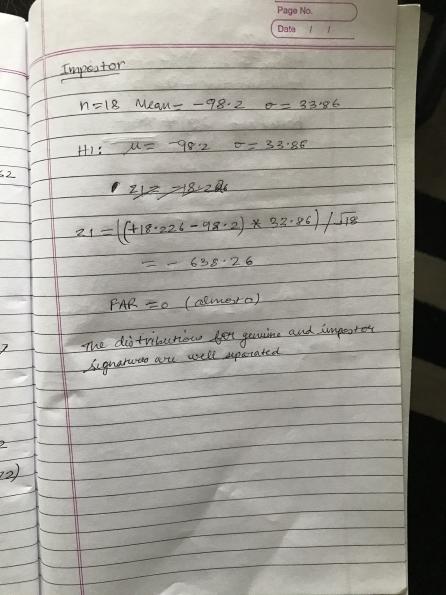 Page No.
Date / /
Impostor
n=18 Mean= -98.2 σ= 33.86
H1: μ= -98.2 σ= 33.86
z1 = ((+18.226 - 98.2) * 33.86) / √18
= - 638.26
FAR = 0 (almost 0)
The distributions for genuine and impostor
signatures are well separated
52
7
2
22)